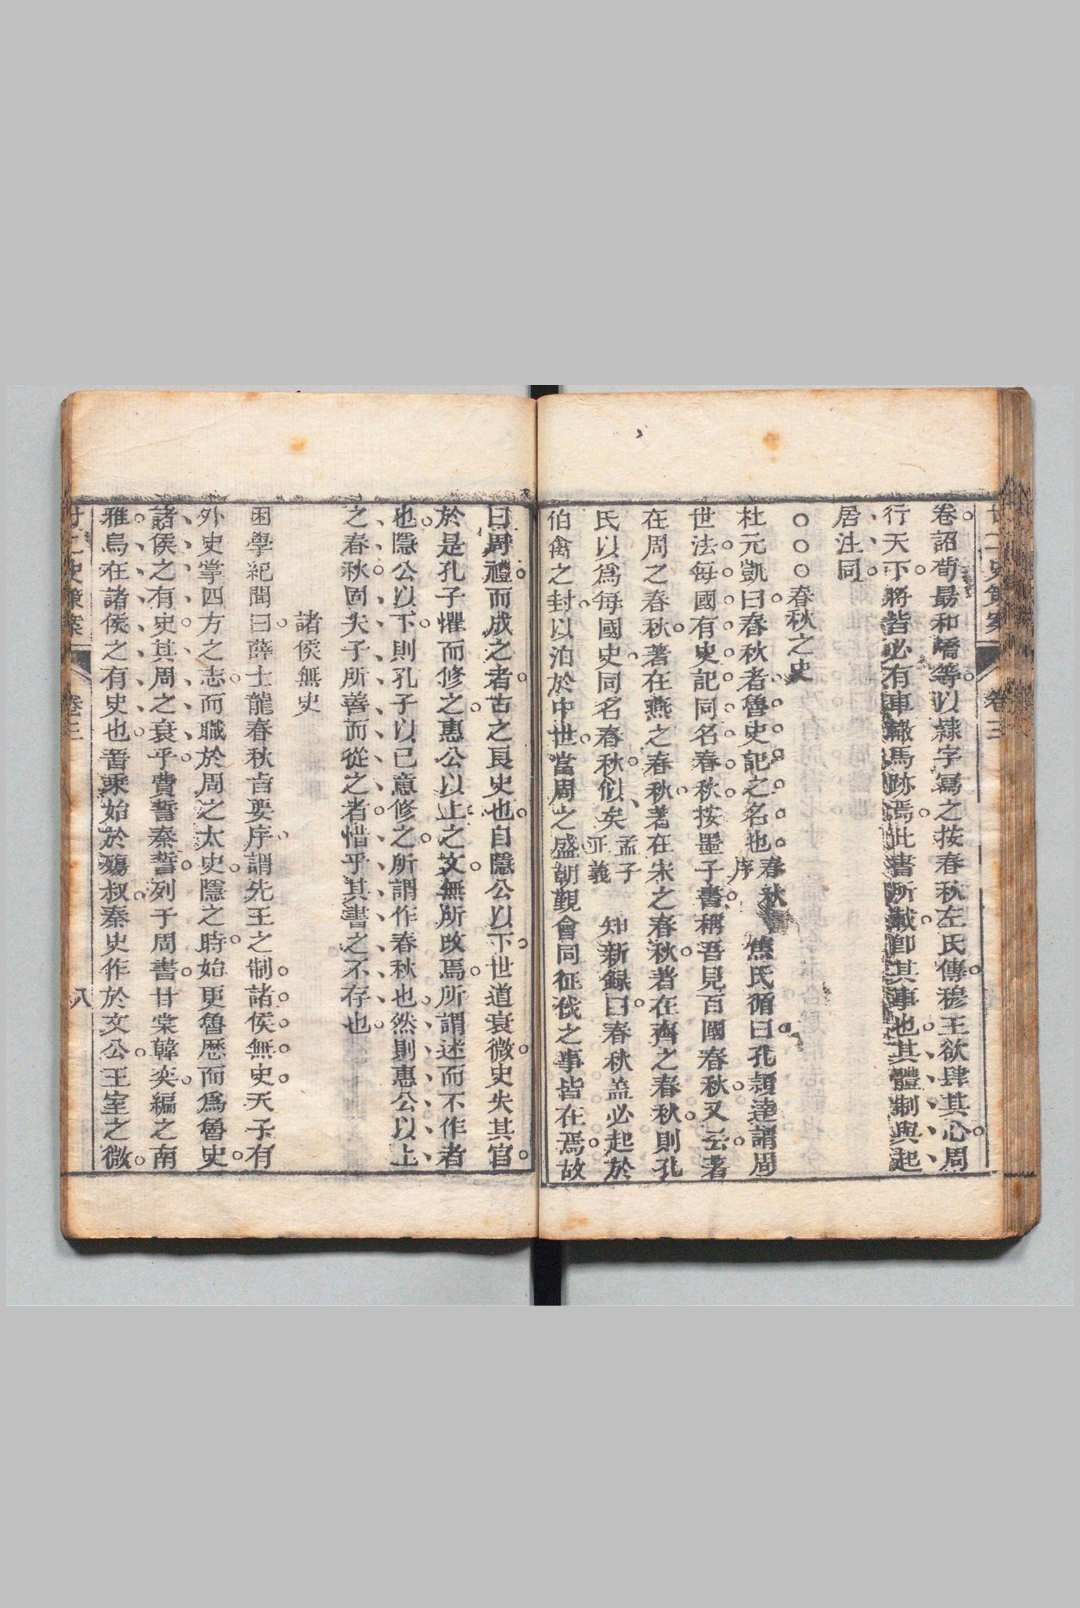 卷詔荀勗和嶠等以隸字寫之按春秋左氏傳穆王欲肆其心周
行天下將皆必有車轍馬跡焉此書所載卽其事也其體制與起
居注同
○○○春秋之史
杜元凱曰春秋者魯史記之名也春秋序 焦氏循曰孔穎達謂周
世法每國有史記同名春秋按墨子書稱吾見百國春秋又云著
在周之春秋著在燕之春秋著在宋之春秋著在齊之春秋則孔
氏以爲每國史同名春秋似矣孟子正義 知新録曰春秋盖必起於
伯禽之封以洎於中世當周之盛朝覲會同征伐之事皆在焉故
曰周禮而成之者古之良史也自隱公以下世道衰微史失其官
於是孔子懼而修之惠公以上之文無所改焉所謂述而不作者
也隱公以下則孔子以己意修之所謂作春秋也然則惠公以上
之春秋固夫子所善而從之者惜乎其書之不存也
諸侯無史
困學紀聞曰薛士龍春秋旨要序謂先王之制諸侯無史天子有
外史掌四方之志而職於周之太史隱之時始更魯歷而爲魯史
諸侯之有史其周之衰乎費誓秦誓列于周書甘棠韓奕編之南
雅烏在諸侯之有史也晉乘始於殤叔秦史作於文公王室之微
廿二史策案 卷三 八